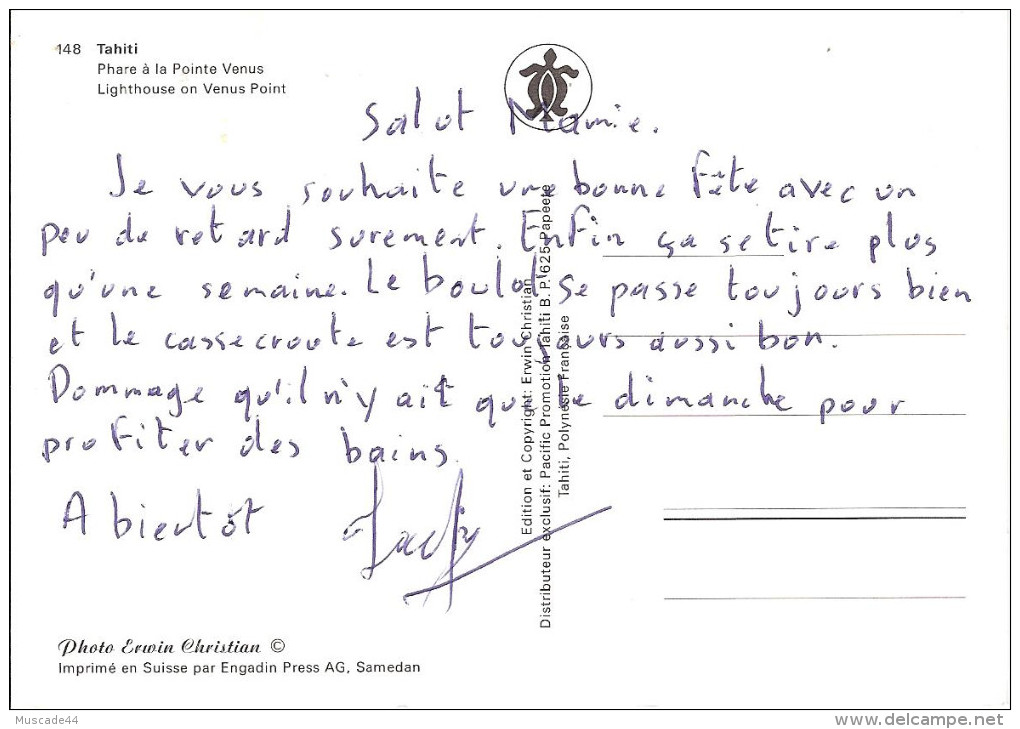 148 Tahiti
Phare à la Pointe Venus
Lighthouse on Venus Point
Salut Mamie.
Je vous souhaite une bonne fête avec un
peu de retard surement. Enfin ça se tire plus
qu'une semaine. Le boulot se passe toujours bien
et le cassecroute est toujours aussi bon.
Dommage qu'il n'y ait que le dimanche pour
profiter des bains.
A bientôt
Edition et Copyright: Erwin Christian
Distributeur exclusif: Pacific Promotion Tahiti B. P. 625 Papeete
Tahiti, Polynésie Française
Photo Erwin Christian ©
Imprimé en Suisse par Engadin Press AG, Samedan
Muscade44
www.delcampe.net